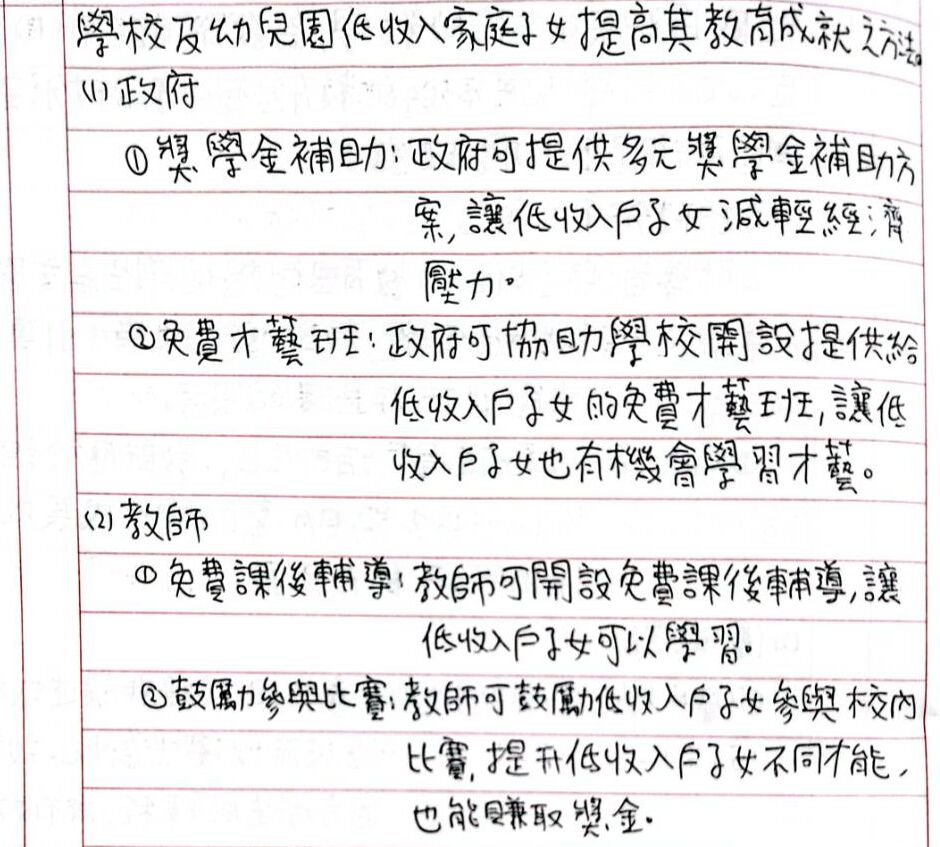 學校及幼兒園低收入家庭子女提高其教育成就之方法。
(1)政府
①獎學金補助:政府可提供多元獎學金補助方
案,讓低收入戶子女減輕經濟
壓力。
②免費才藝班:政府可協助學校開設提供給
低收入戶子女的免費才藝班,讓低
收入戶子女也有機會學習才藝。
(2)教師
①免費課後輔導:教師可開設免費課後輔導,讓
低收入戶子女可以學習。
②鼓勵參與比賽:教師可鼓勵低收入戶子女參與校內
比賽,提升低收入戶子女不同才能,
也能賺取獎金。